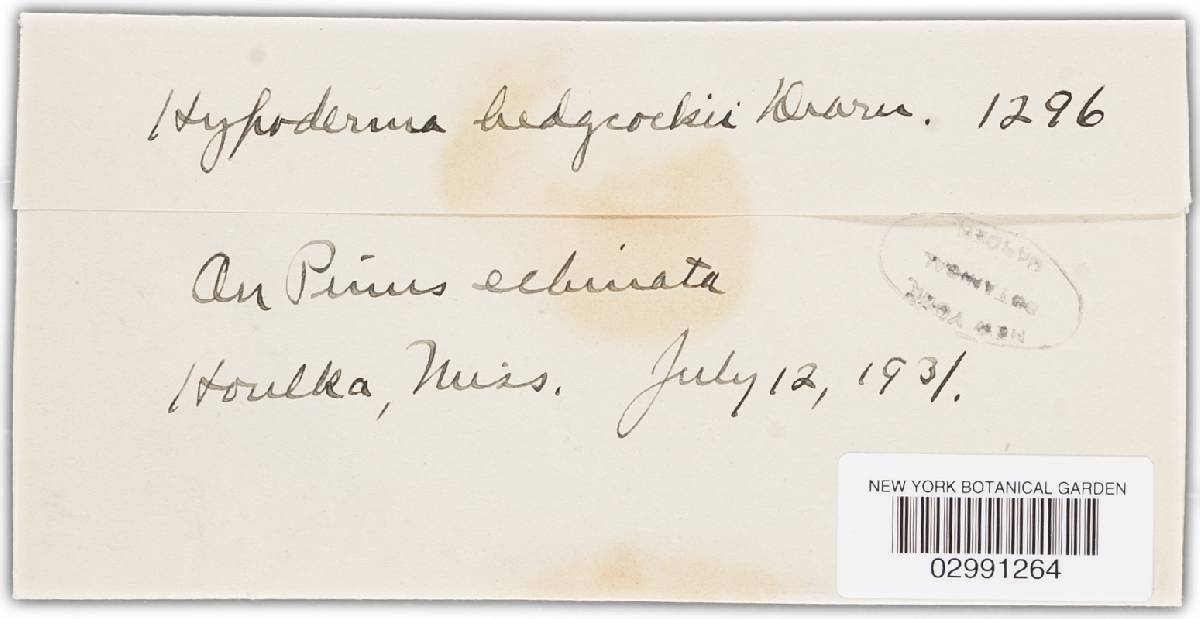 Hypoderma hedgcockii Dearn. 1296
On Pinus echinata
Houlka, Miss. July 12, 1931.
NEW YORK
BOTANICAL
GARDEN
NEW YORK BOTANICAL GARDEN
02991264